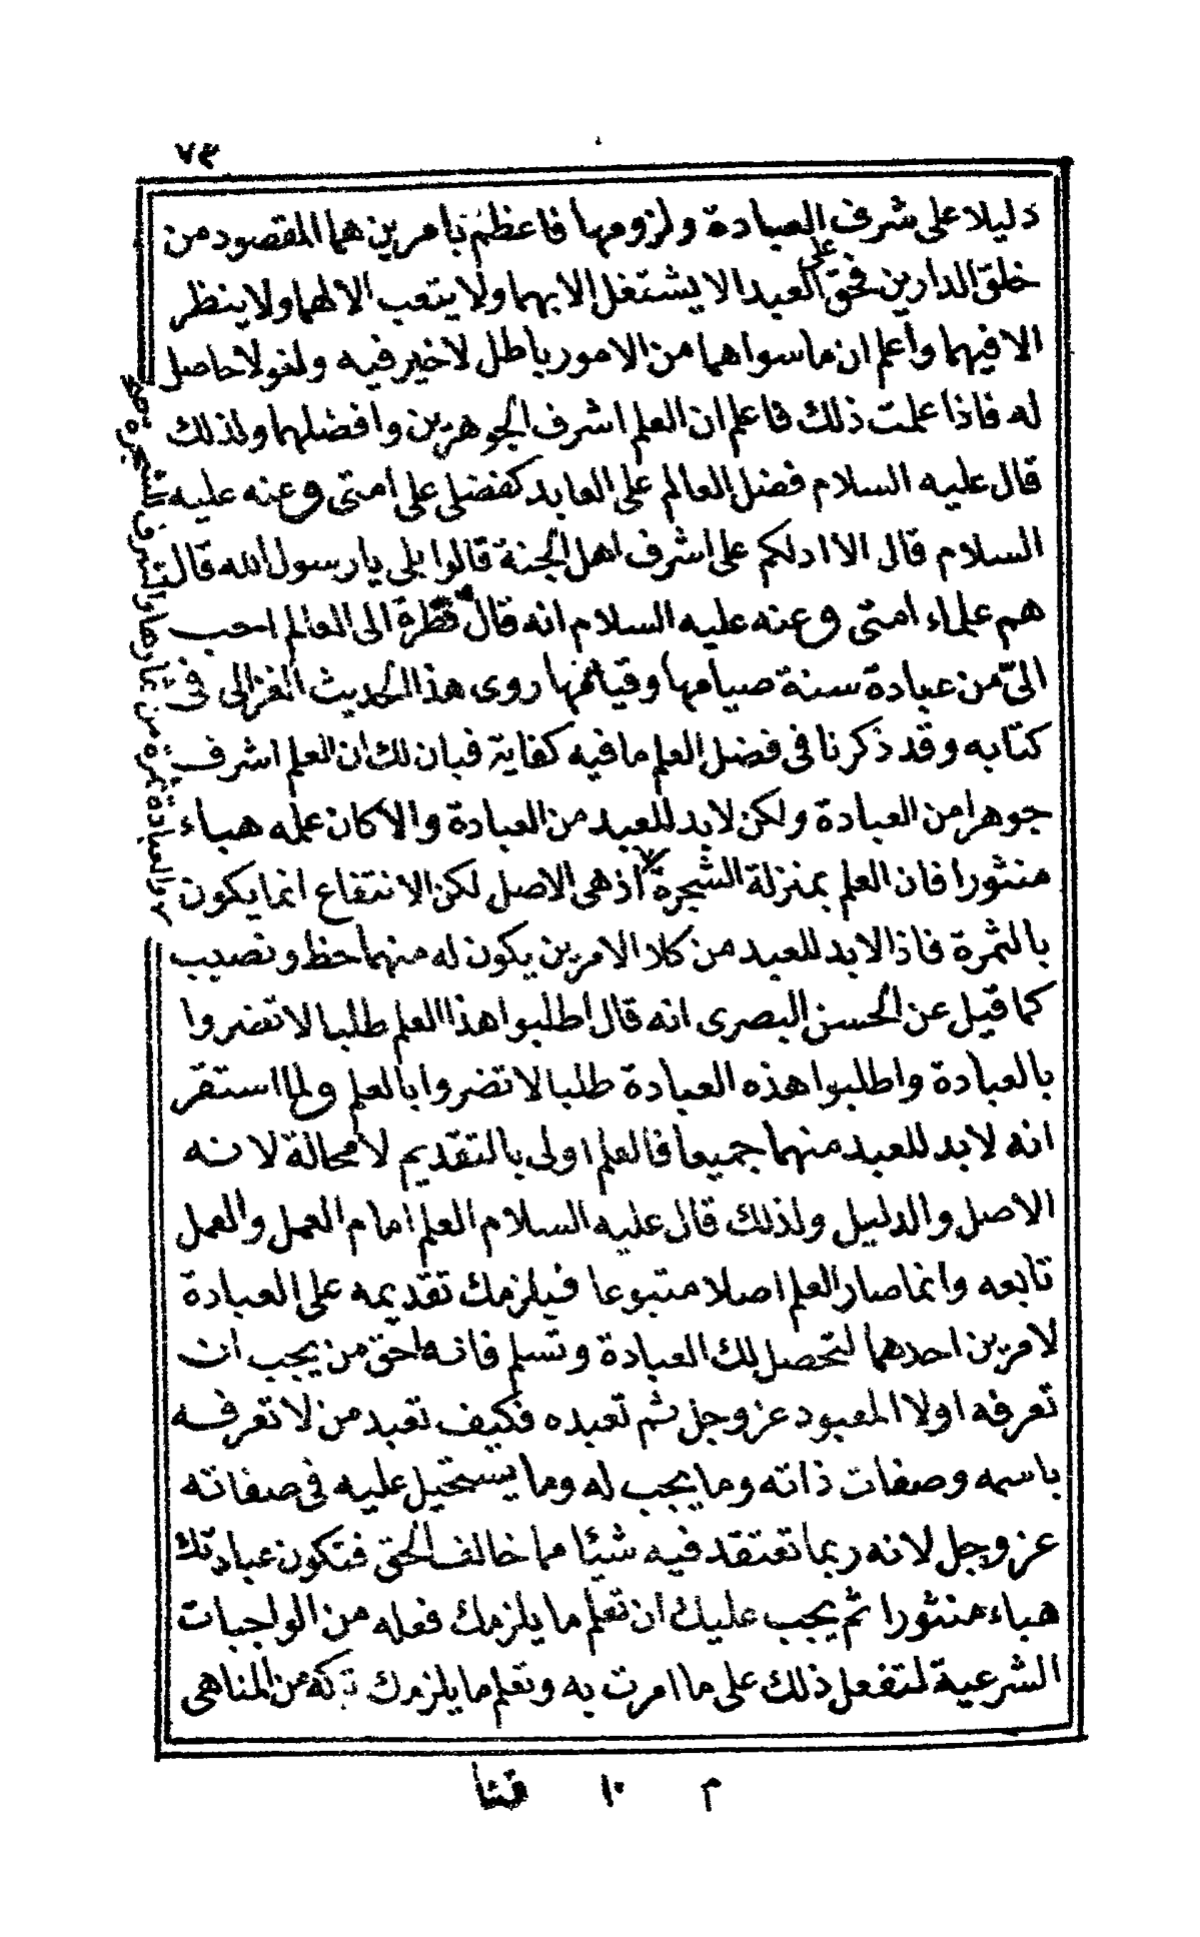 ٧٣
دليلا على شرف العبادة ولزومها فاعظم بامرين هما المقصود من
خلق الدارين فحق على العبد الا يشتغل الا بهما ولا يتعب الا لهما ولا ينظر
الا فيهما واعلم ان ما سواهما من الامور باطل لا خير فيه ولغو لا حاصل
له فاذا علمت ذلك فاعلم ان العلم اشرف الجوهرين وافضلهما ولذلك
قال عليه السلام فضل العالم على العابد كفضلى على امتى وعنه عليه
السلام قال الا ادلكم على اشرف اهل الجنة قالوا بلى يا رسول الله قال
هم علماء امتى وعنه عليه السلام انه قال نظرة الى العالم احب
الىّ من عبادة سنة صيامها وقيامها روى هذا الحديث الغزالى فى
كتابه وقد ذكرنا فى فضل العلم ما فيه كفاية فبان لك ان العلم اشرف
جوهرا من العبادة ولكن لابد للعبد من العبادة والا كان عمله هباء
منثورا فان العلم بمنزلة الشجرة اذ هى الاصل لكن الانتفاع انما يكون
بالثمرة فاذا لابد للعبد من كلا الامرين يكون له منهما حظ ونصيب
كما قيل عن الحسن البصرى انه قال اطلبوا هذا العلم طلبا لا تضروا
بالعبادة واطلبوا هذه العبادة طلبا لا تضروا بالعلم ولما استقر
انه لابد للعبد منهما جميعا فالعلم اولى بالتقديم لا محالة لانه
الاصل والدليل ولذلك قال عليه السلام العلم امام العمل والعمل
تابعه وانما صار العلم اصلا متبوعا فيلزمك تقديمه على العبادة
لامرين احدهما لتحصل لك العبادة وتسلم فانه احق من يجب ان
تعرفه اولا المعبود عز وجل ثم تعبده فكيف تعبد من لا تعرفه
باسمه وصفات ذاته وما يجب له وما يستحيل عليه فى صفاته
عز وجل لانه ربما تعتقد فيه شيئا مما خالف الحق فتكون عبادتك
هباء منثورا ثم يجب عليك ان تعلم ما يلزمك فعله من الواجبات
الشرعية لتفعل ذلك على ما امرت به وتعلم ما يلزمك تركه من المناهى
والعبادة ثمرة من ثمارها والشرف للشجرة صح
م ١٠ قشا